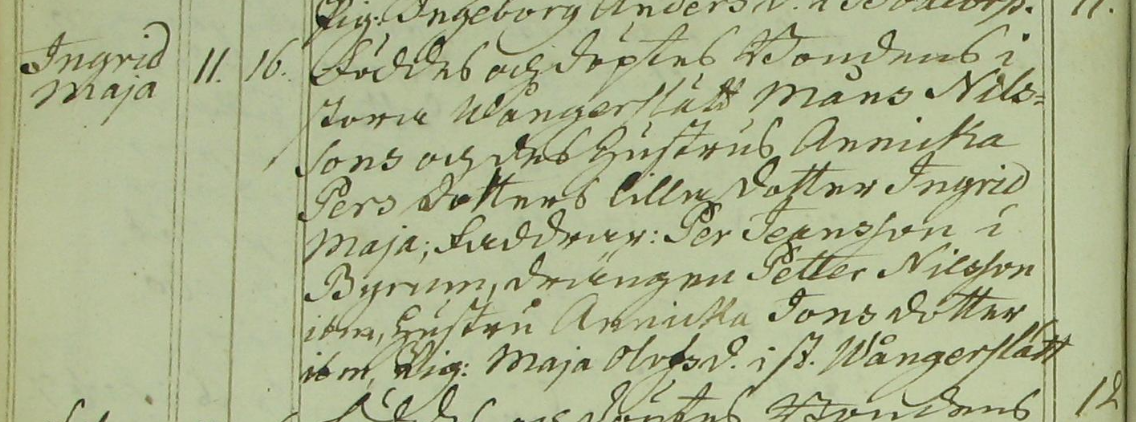 Pig: Ingeborg Anders D. i 11.
Ingrid Maja 11. 16. Föddes och döptes Bondens i
stora Wångerslätt Måns Nils=
sons och des Hustrus Annicka
Pers Dotters lilla Dotter Ingrid
Maja; Faddrar: Per Jeansson i
Byrum, drängen Petter Nilsson
ibm, Hustru Annicka Jonsdotter
ibm, Pig: Maja Olofs D. i st. Wångerslätt
12
Föddes och döptes Bondens